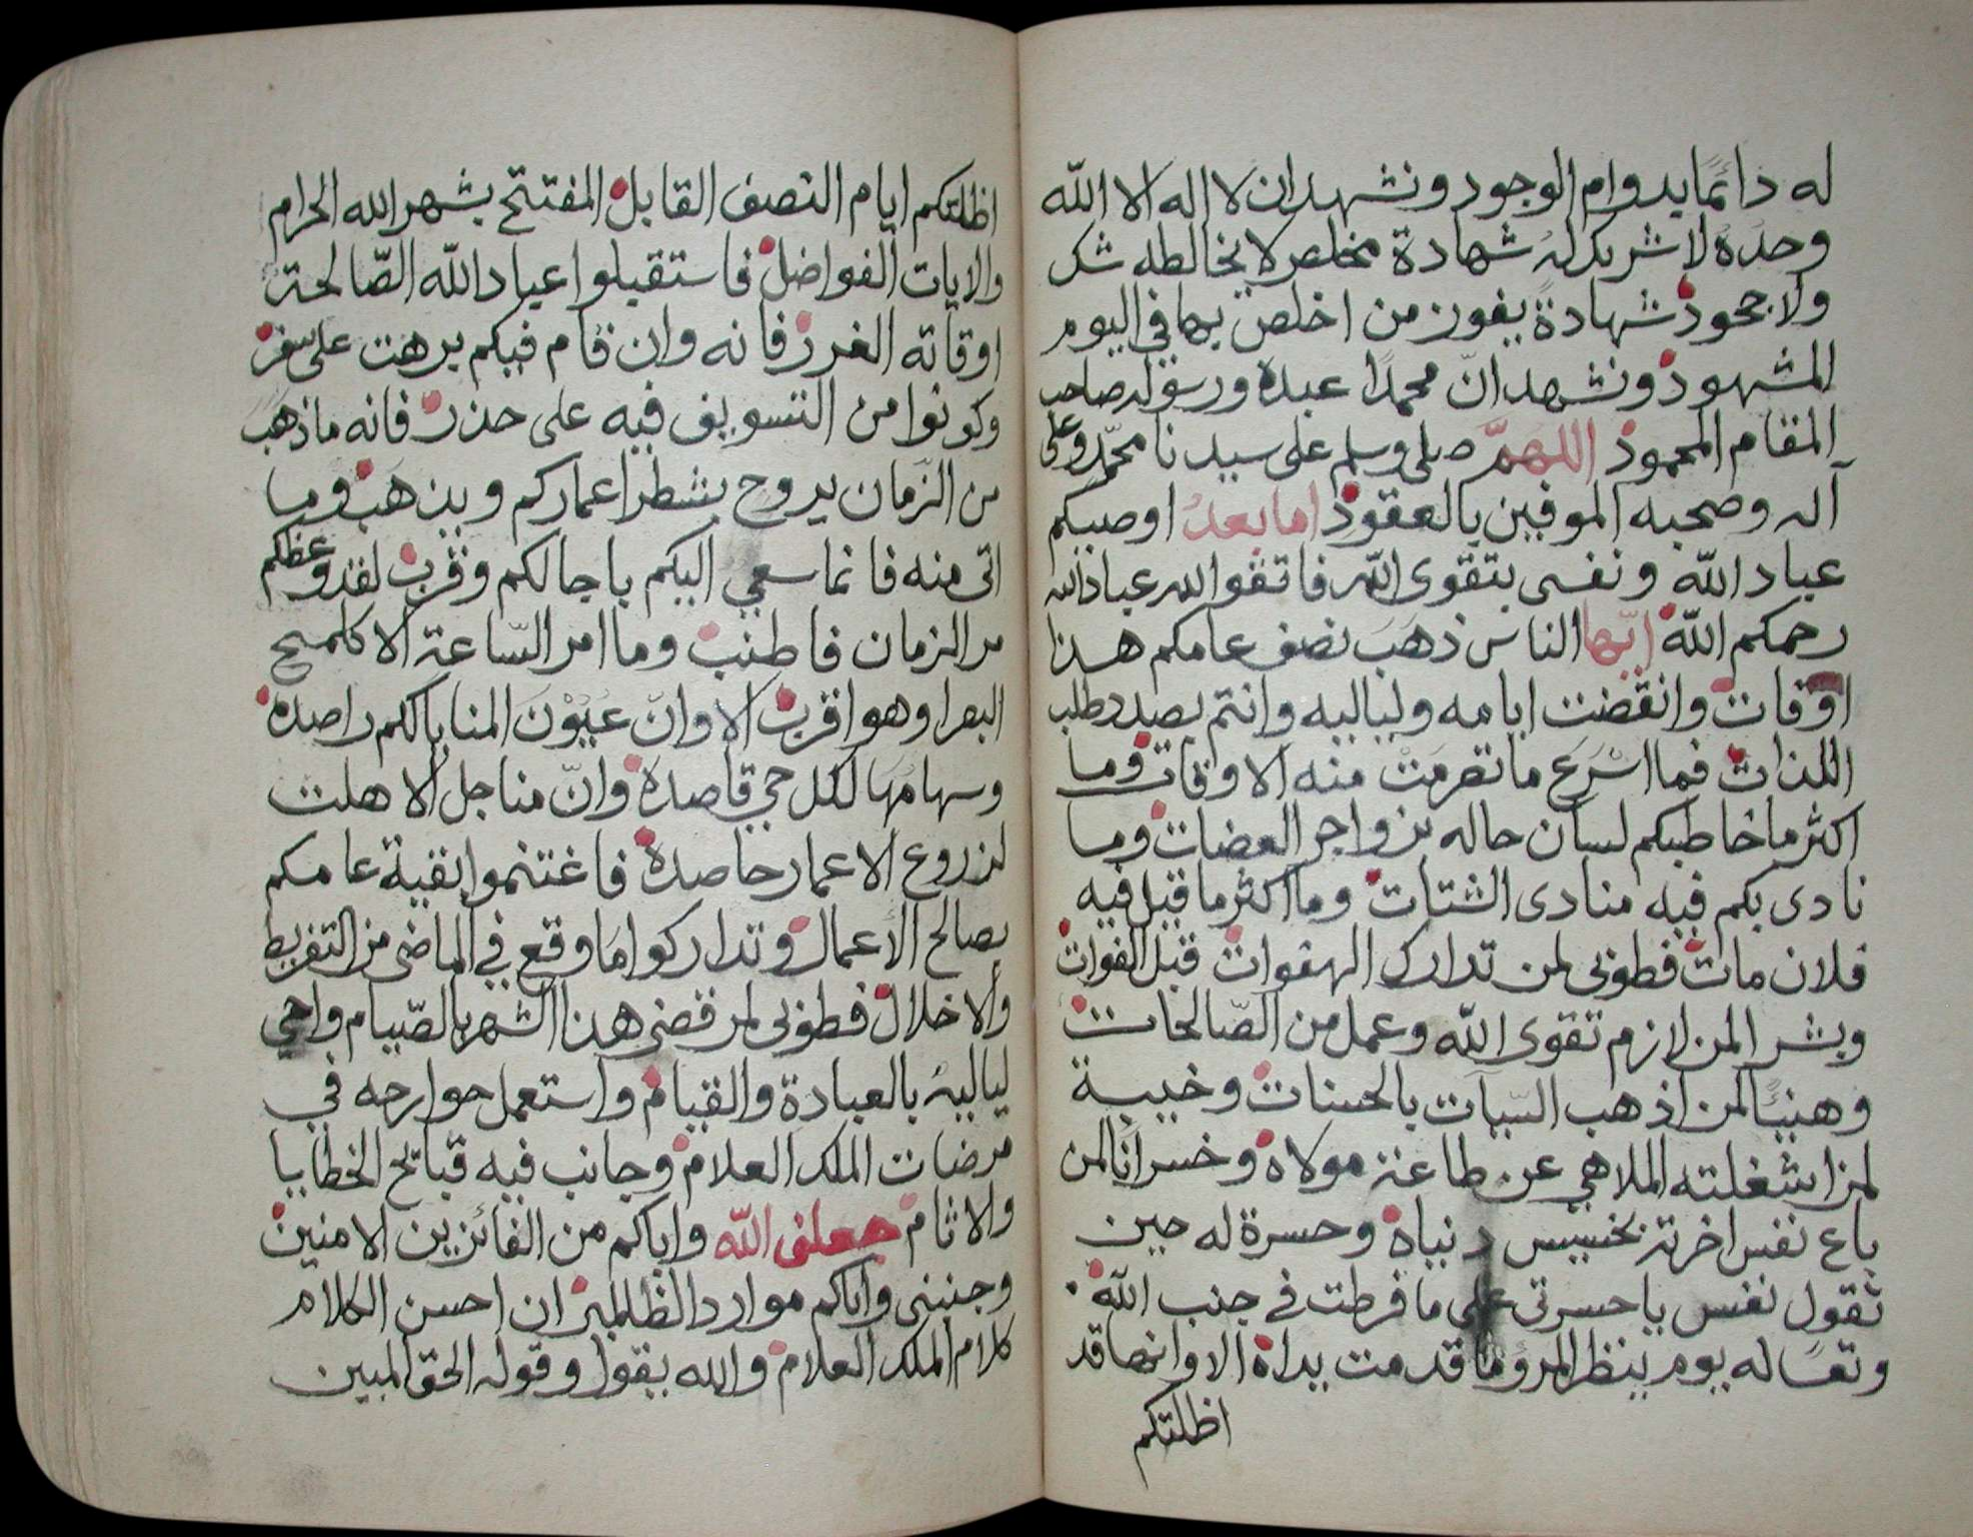 له دائما بدوام الوجود ونشهد ان لا اله الا الله
وحده لا شريك له شهادة مخلص لا يخالطه شك
ولا جحود شهادة يفوز من اخلص بها في اليوم
المشهود ونشهد انّ محمدًا عبده ورسوله صاحب
المقام المحمود اللهمّ صلى وسلم على سيدنا محمّد وعلى
آله وصحبه الموفين بالعقود اما بعد اوصيكم
عباد الله ونفسى بتقوى الله فاتقوا الله عباد الله
رحمكم الله ايّها الناس ذهَبَ نصف عامكم هذا
اوقات وانقضت ايامه ولياليه وانتم بصدد طلب
اللذات فما اسْرَع ما تصرمَتْ منه الاوقات وما
اكثر ما خاطبكم لسان حاله بزواجر العضات وما
نادى بكم فيه منادى الشتات وما اكثر ما قيل فيه
فلان مات فطوبى لمن تدارك الهفوات قبل الفوات
وبشر المن لازم تقوى الله وعمل من الصّالحات
وهنيًا لمن اذهب السّيآت بالحسنات وخيبة
لمن اشغلته الملاهي عن طاعة مولاه وخسرانًا لمن
باع نفس اخرته بخسيس دنياه وحسرة له حين
تقول نفس ياحسرتى على ما فرطت في جنب الله
وتعسًا له يوم ينظر المرؤ ما قدمت يداه الا وانها قد
اظلتكم
اظلتكم ايام النصف القابل المفتتح بشهر الله الحرام
والايات الفواضل فاستقبلوا عباد الله الصّالحة
اوقاته الغرر فانه وان قام فيكم برهت على سفر
وكونوا من التسويف فيه على حذر فانه ما ذهَبَ
من الزّمان يروح بشطر اعماركم ويذهَب وما
اتى منه فانما سعي اليكم باجالكم وقرب لقد وعظكم
مر الزمان فاطنب وما امر السّاعة الا كلمح
البصر او هو اقرب الا وانّ عيُوْنَ المنايا لكم راصده
وسهامُهَا لكل حي قاصدة وانّ مناجل الاهلت
لزروع الاعمار حاصدة فاغتنموا بقية عامكم
بصالح الأعمال وتداركوا مَا وقع في الماضى من التفريط
والاخلال فطوبى لمن قضى هذا الشهر بالصّيام واحيي
لياليه بالعبادة والقيام واستعمل جوارحه في
مرضات الملك العلام وجانب فيه قبايح الخطايا
والاثام جعلنى الله واياكم من الفائزين الامنين
وجنبنى واياكم موارد الظالمين ان احسن الكلام
كلام الملك العلام والله يقول وقوله الحق المبين